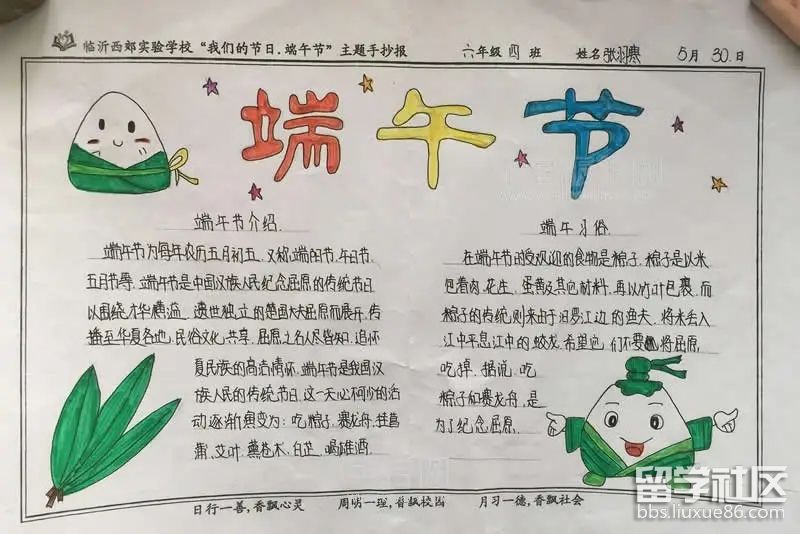 临沂西郊实验学校“我们的节日.端午节”主题手抄报 六年级 四 班 姓名 张羽寒 5月 30.日
端午节
端午节介绍
端午节为每年农历五月初五.又称.端阳节.午日节.
五月节等.端午节是中国汉族人民纪念屈原的传统节日
以围绕才华横溢.遗世独立的楚国大夫屈原而展开.传
播至华夏各地.民俗文化共享.屈原之名人尽皆知.追怀
夏民族的高洁情怀.端午节是我国汉
族人民的传统节日.这一天必不可少的活
动逐渐演变为:吃粽子.赛龙舟.挂菖
蒲.艾叶.薰苍术.白芷.喝雄酒.
端午习俗
在端午节日受欢迎的食物是粽子.粽子是以米
包着肉.花生.蛋黄及其他材料.再以竹叶包裹.而
粽子的传统.则来由于汨罗江边的渔夫.将米丢入
江中平息江中的蛟龙.希望他们不要将屈原
吃掉.据说.吃
粽子和赛龙舟.是
为了纪念屈原.
日行一善,香飘心灵 周明一理,香飘校园 月习一德,香飘社会
留学社区
bbs.liuxue86.com